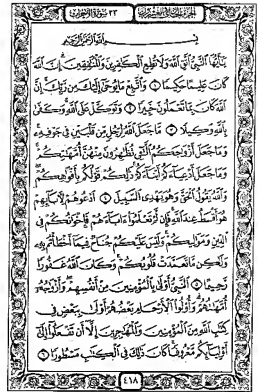 ٣٣ سورة الأحزاب
بِسْمِ اللَّهِ الرَّحْمَٰنِ الرَّحِيمِ
يَٰٓأَيُّهَا ٱلنَّبِيُّ ٱتَّقِ ٱللَّهَ وَلَا تُطِعِ ٱلْكَٰفِرِينَ وَٱلْمُنَٰفِقِينَ إِنَّ ٱللَّهَ
كَانَ عَلِيمًا حَكِيمًا ١ وَٱتَّبِعْ مَا يُوحَىٰٓ إِلَيْكَ مِن رَّبِّكَ إِنَّ
ٱللَّهَ كَانَ بِمَا تَعْمَلُونَ خَبِيرًا ٢ وَتَوَكَّلْ عَلَى ٱللَّهِ وَكَفَىٰ
بِٱللَّهِ وَكِيلًا ٣ مَّا جَعَلَ ٱللَّهُ لِرَجُلٍ مِّن قَلْبَيْنِ فِي جَوْفِهِۦ
وَمَا جَعَلَ أَزْوَٰجَكُمُ ٱلَّٰٓـِٔي تُظَٰهِرُونَ مِنْهُنَّ أُمَّهَٰتِكُمْ
وَمَا جَعَلَ أَدْعِيَآءَكُمْ أَبْنَآءَكُمْ ذَٰلِكُمْ قَوْلُكُم بِأَفْوَٰهِكُمْ
وَٱللَّهُ يَقُولُ ٱلْحَقَّ وَهُوَ يَهْدِي ٱلسَّبِيلَ ٤ ٱدْعُوهُمْ لِءَابَآئِهِمْ
هُوَ أَقْسَطُ عِندَ ٱللَّهِ فَإِن لَّمْ تَعْلَمُوٓا۟ ءَابَآءَهُمْ فَإِخْوَٰنُكُمْ فِي
ٱلدِّينِ وَمَوَٰلِيكُمْ وَلَيْسَ عَلَيْكُمْ جُنَاحٌ فِيمَآ أَخْطَأْتُم بِهِۦ
وَلَٰكِن مَّا تَعَمَّدَتْ قُلُوبُكُمْ وَكَانَ ٱللَّهُ غَفُورًا
رَّحِيمًا ٥ ٱلنَّبِيُّ أَوْلَىٰ بِٱلْمُؤْمِنِينَ مِنْ أَنفُسِهِمْ وَأَزْوَٰجُهُۥٓ
أُمَّهَٰتُهُمْ وَأُو۟لُوا۟ ٱلْأَرْحَامِ بَعْضُهُمْ أَوْلَىٰ بِبَعْضٍ فِي
كِتَٰبِ ٱللَّهِ مِنَ ٱلْمُؤْمِنِينَ وَٱلْمُهَٰجِرِينَ إِلَّآ أَن تَفْعَلُوٓا۟ إِلَىٰٓ
أَوْلِيَآئِكُم مَّعْرُوفًا كَانَ ذَٰلِكَ فِي ٱلْكِتَٰبِ مَسْطُورًا ٦
٤١٨